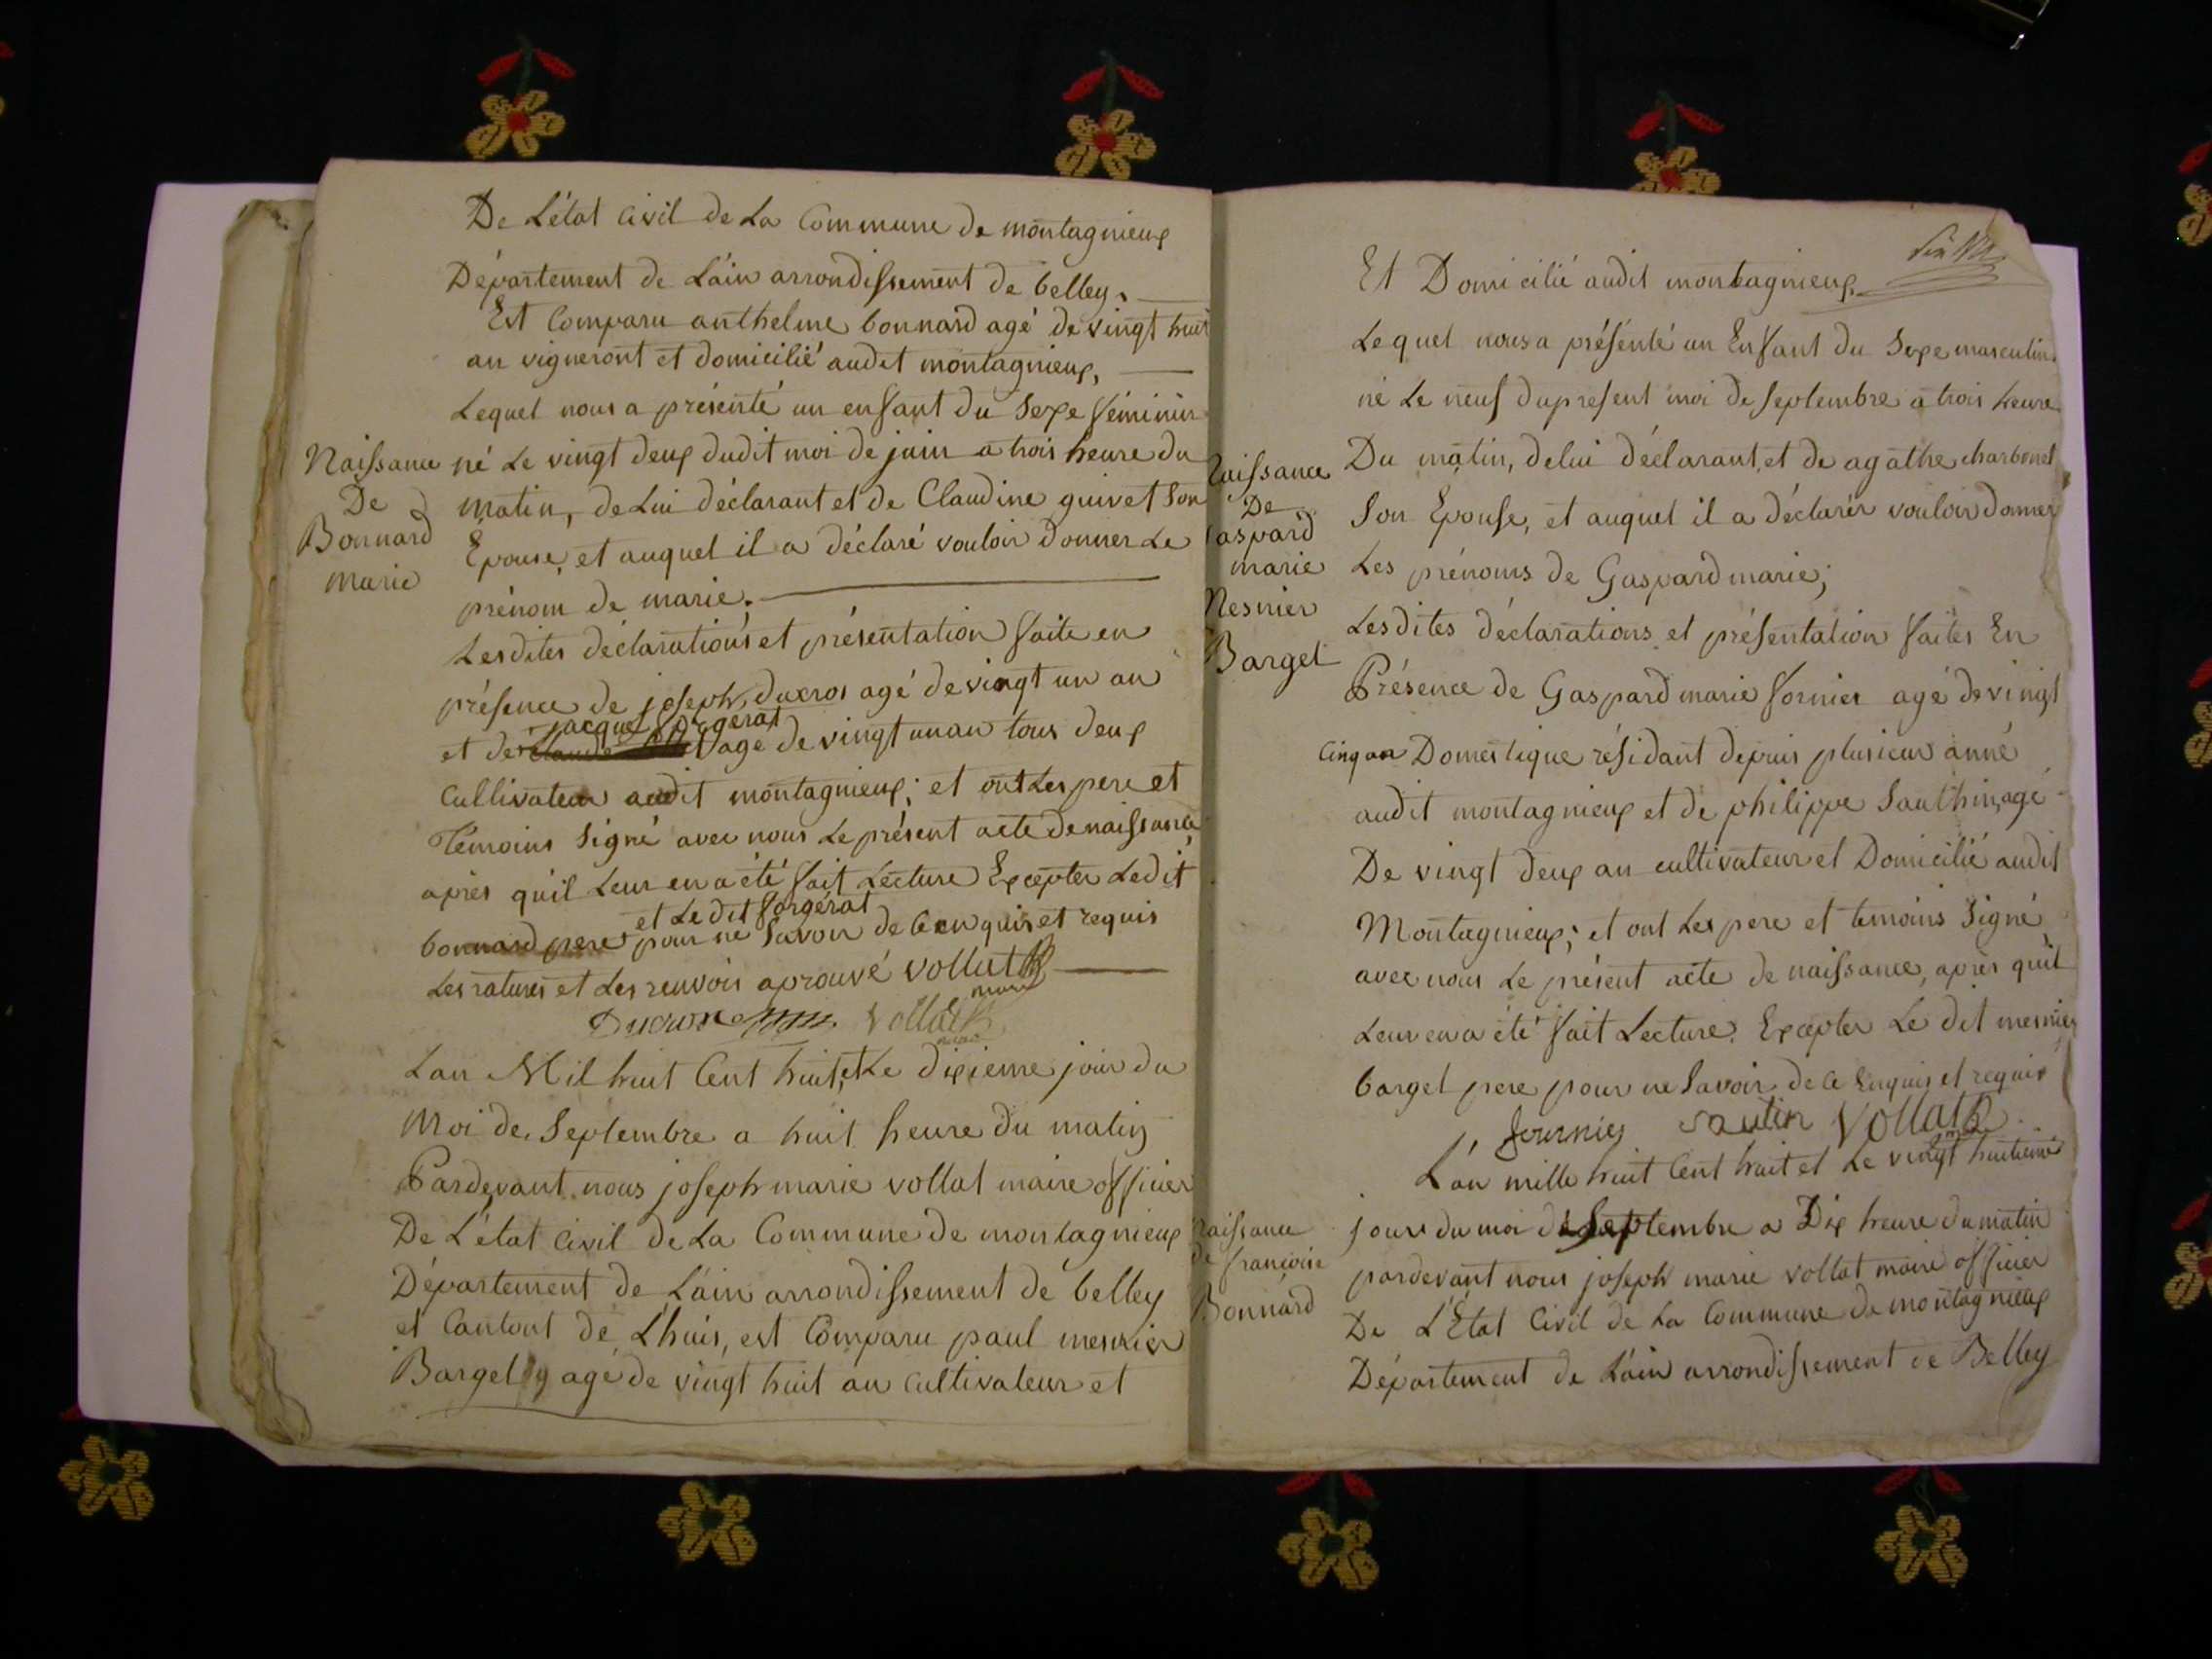 De L'état Civil de La Commune de montagnieux
Département de L'ain arrondissement de belley.
Est Comparu anthelme bonnard agé de vingt huit
an vigneront et domicilié audit montagnieux,
Lequel nous a présenté un enfant du Sexe féminin
Naissance
De
Bonnard
Marie
né Le vingt deux dudit moi de juin a trois heure du
matin, de Lui déclarant et de Claudine guivet Son
Epouse, et auquel il a déclaré vouloir donner Le
prénom de marie.
Lesdites déclarations et présentation faite en
présence de joseph ducros agé de vingt un an
jacque forgerat
et de Claude agé de vingt un an tous deux
Cultivateur audit montagnieux; et ont Les pere et
Témoins Signé avec nous Le présent acte de naissance,
après qu'il Leur en a été fait Lecture Excepter Ledit
et Le dit forgérat
bonnard pere pour ne Savoir de Ce enquis et requis
Les ratures et Les renvois aprouvé Vollat
maire
Ducros Vollat
maire
L'an Mil huit Cent huit, et Le dixieme jour du
Moi de Septembre a huit heure du matin
Pardevant nous joseph marie vollat maire officier
De L'état Civil de La Commune de montagnieux
Département de L'ain arrondissement de belley
et Cantont de L'huis, est Comparu paul mesnier
Barget agé de vingt huit an Cultivateur et
Et Domicilié audit montagnieux.
Lequel nous a présenté un Enfant du Sexe masculin
né Le neuf du present moi de Septembre a trois heure
Naissance
De
Gaspard
marie
Mesnier
Barget
Du matin, de lui déclarant, et de agathe charbonet
Son Epouse, et auquel il a déclarér vouloir donner
Les prénoms de Gaspard marie;
Lesdites déclarations et présentation faites En
Présence de Gaspard marie fornier agé de vingt
Cinq an Domestique résidant depuis plusieur anné
audit montagnieux et de philippe Sauthin, agé
De vingt deux an cultivateur et Domicilié audit
Montagnieux; et ont Les pere et temoins Signé
avec nous Le présent acte de naissance, après qu'il
Leur en a été fait Lecture. Excepter Le dit mesnier
barget pere pour ne Savoir de Ce Enquis et requis
fournier sautin Vollat
maire
L'an mille huit Cent huit et Le vingt huitieme
Naissance
de françoise
Bonnard
jour du moi de Septembre a Dix heure du matin
pardevant nous joseph marie vollat maire officier
De L'État Civil de La Commune de montagnieux
Département de L'ain arrondissement de Belley